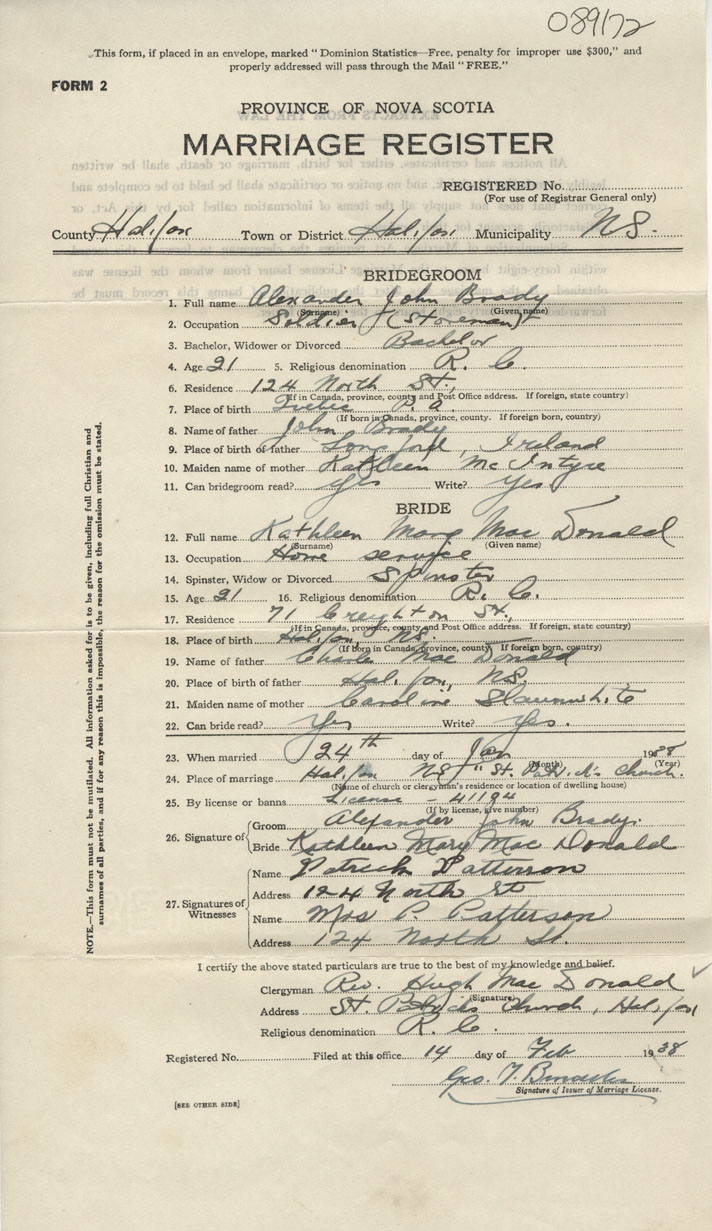 089172
This form, if placed in an envelope, marked "Dominion Statistics—Free, penalty for improper use $300," and
properly addressed will pass through the Mail "FREE."
FORM 2
PROVINCE OF NOVA SCOTIA
MARRIAGE REGISTER
REGISTERED No.
(For use of Registrar General only)
County Halifax Town or District Halifax Municipality NS.
BRIDEGROOM
1. Full name Alexander John Brady
(Surname) (Given name)
2. Occupation Soldier (Storeman)
3. Bachelor, Widower or Divorced Bachelor
4. Age 21 5. Religious denomination R. C.
6. Residence 124 North St.,
(If in Canada, province, county and Post Office address. If foreign, state country)
7. Place of birth P. Q.
(If born in Canada, province, county. If foreign born, country)
8. Name of father John Brady
9. Place of birth of father Longford, Ireland
10. Maiden name of mother Kathleen McIntyre
11. Can bridegroom read? Yes Write? Yes
BRIDE
12. Full name Kathleen Mary MacDonald
(Surname) (Given name)
13. Occupation Home service
14. Spinster, Widow or Divorced Spinster
15. Age 21 16. Religious denomination R. C.
17. Residence 71 Creighton St.,
(If in Canada, province, county and Post Office address. If foreign, state country)
18. Place of birth Halifax, NS.
(If born in Canada, province, county. If foreign born, country)
19. Name of father Charles MacDonald
20. Place of birth of father Halifax, NS.
21. Maiden name of mother Caroline Slaunwhite
22. Can bride read? Yes Write? Yes.
23. When married 24th day of Jan 1938
(Month) (Year)
24. Place of marriage Halifax NS "St. Patrick's Church.
(Name of church or clergyman's residence or location of dwelling house)
25. By license or banns License - 41194
(If by license, give number)
26. Signature of Groom Alexander John Brady.
Bride Kathleen Mary MacDonald
27. Signatures of Witnesses Name Patrick Patterson
Address 124 North St
Name Mrs P. Patterson
Address 124 North St.
I certify the above stated particulars are true to the best of my knowledge and belief.
Clergyman Rev. Hugh MacDonald
(Signature)
Address St. Patricks Church, Halifax
Religious denomination R. C.
Registered No. Filed at this office 14 day of Feb 1938
Geo. T.
Signature of Issuer of Marriage License.
[SEE OTHER SIDE]
NOTE.—This form must not be mutilated. All information asked for is to be given, including full Christian and
surnames of all parties, and if for any reason this is impossible, the reason for the omission must be stated.